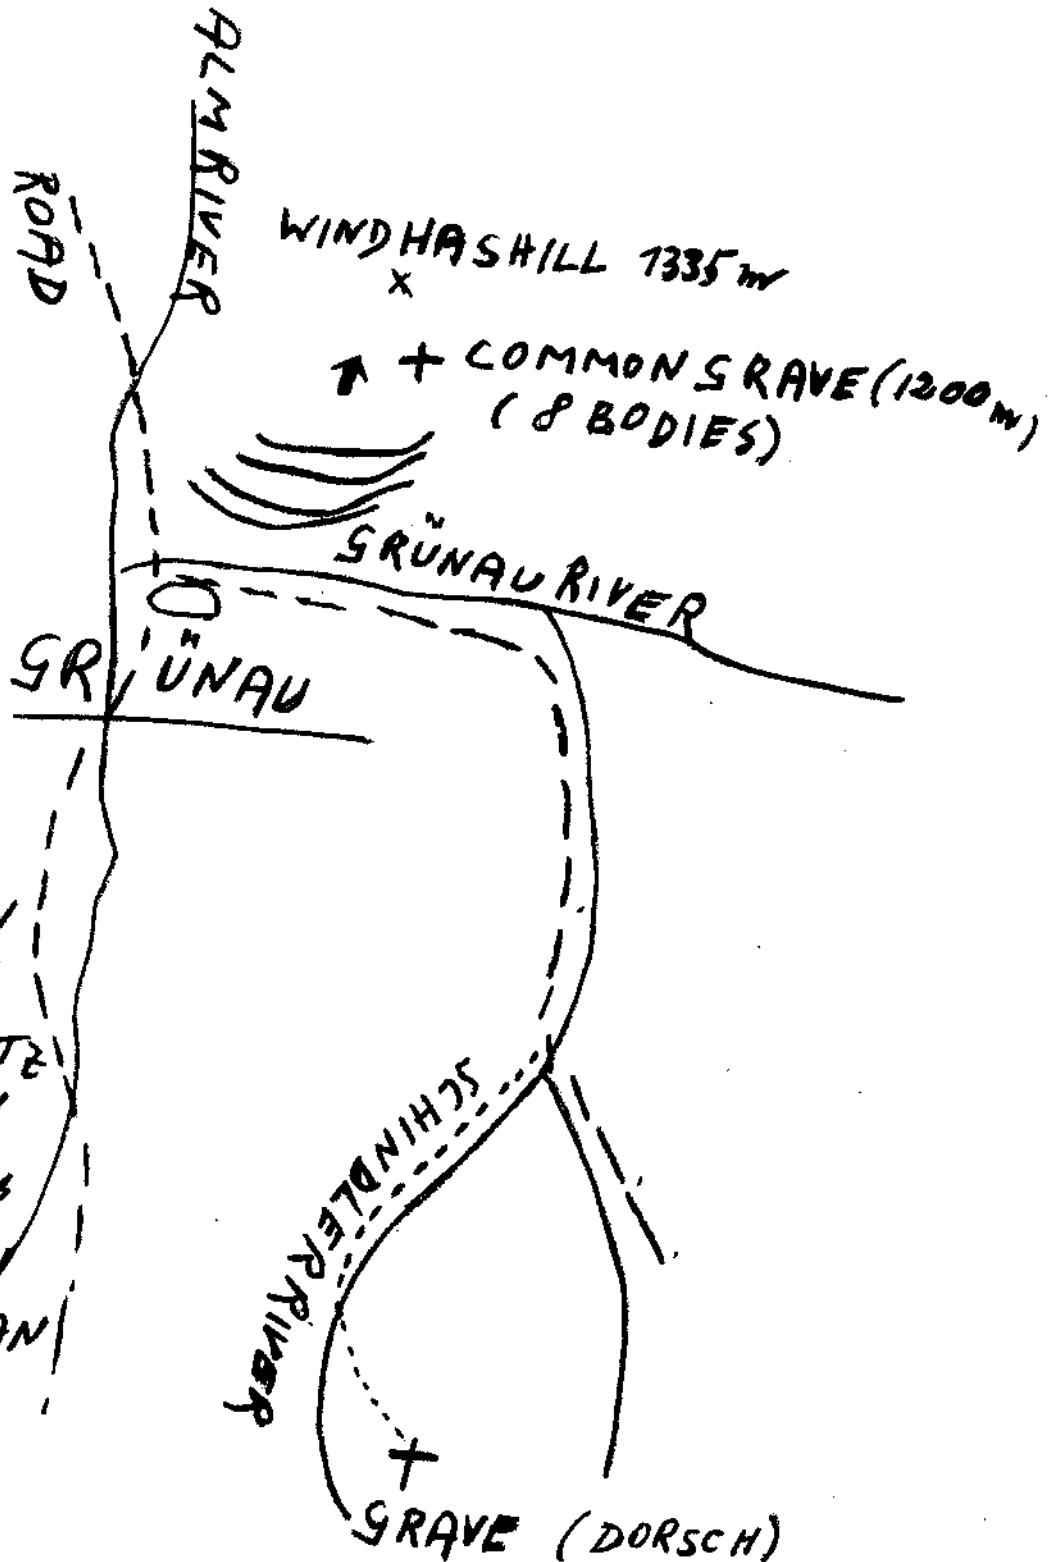 ALM RIVER
ROAD
WINDHASHILL 1335 m
x
+ COMMON GRAVE (1200 m)
(8 BODIES)
GRÜNAU RIVER
GRÜNAU
TZ
SCHINDLER RIVER
AN
GRAVE (DORSCH)